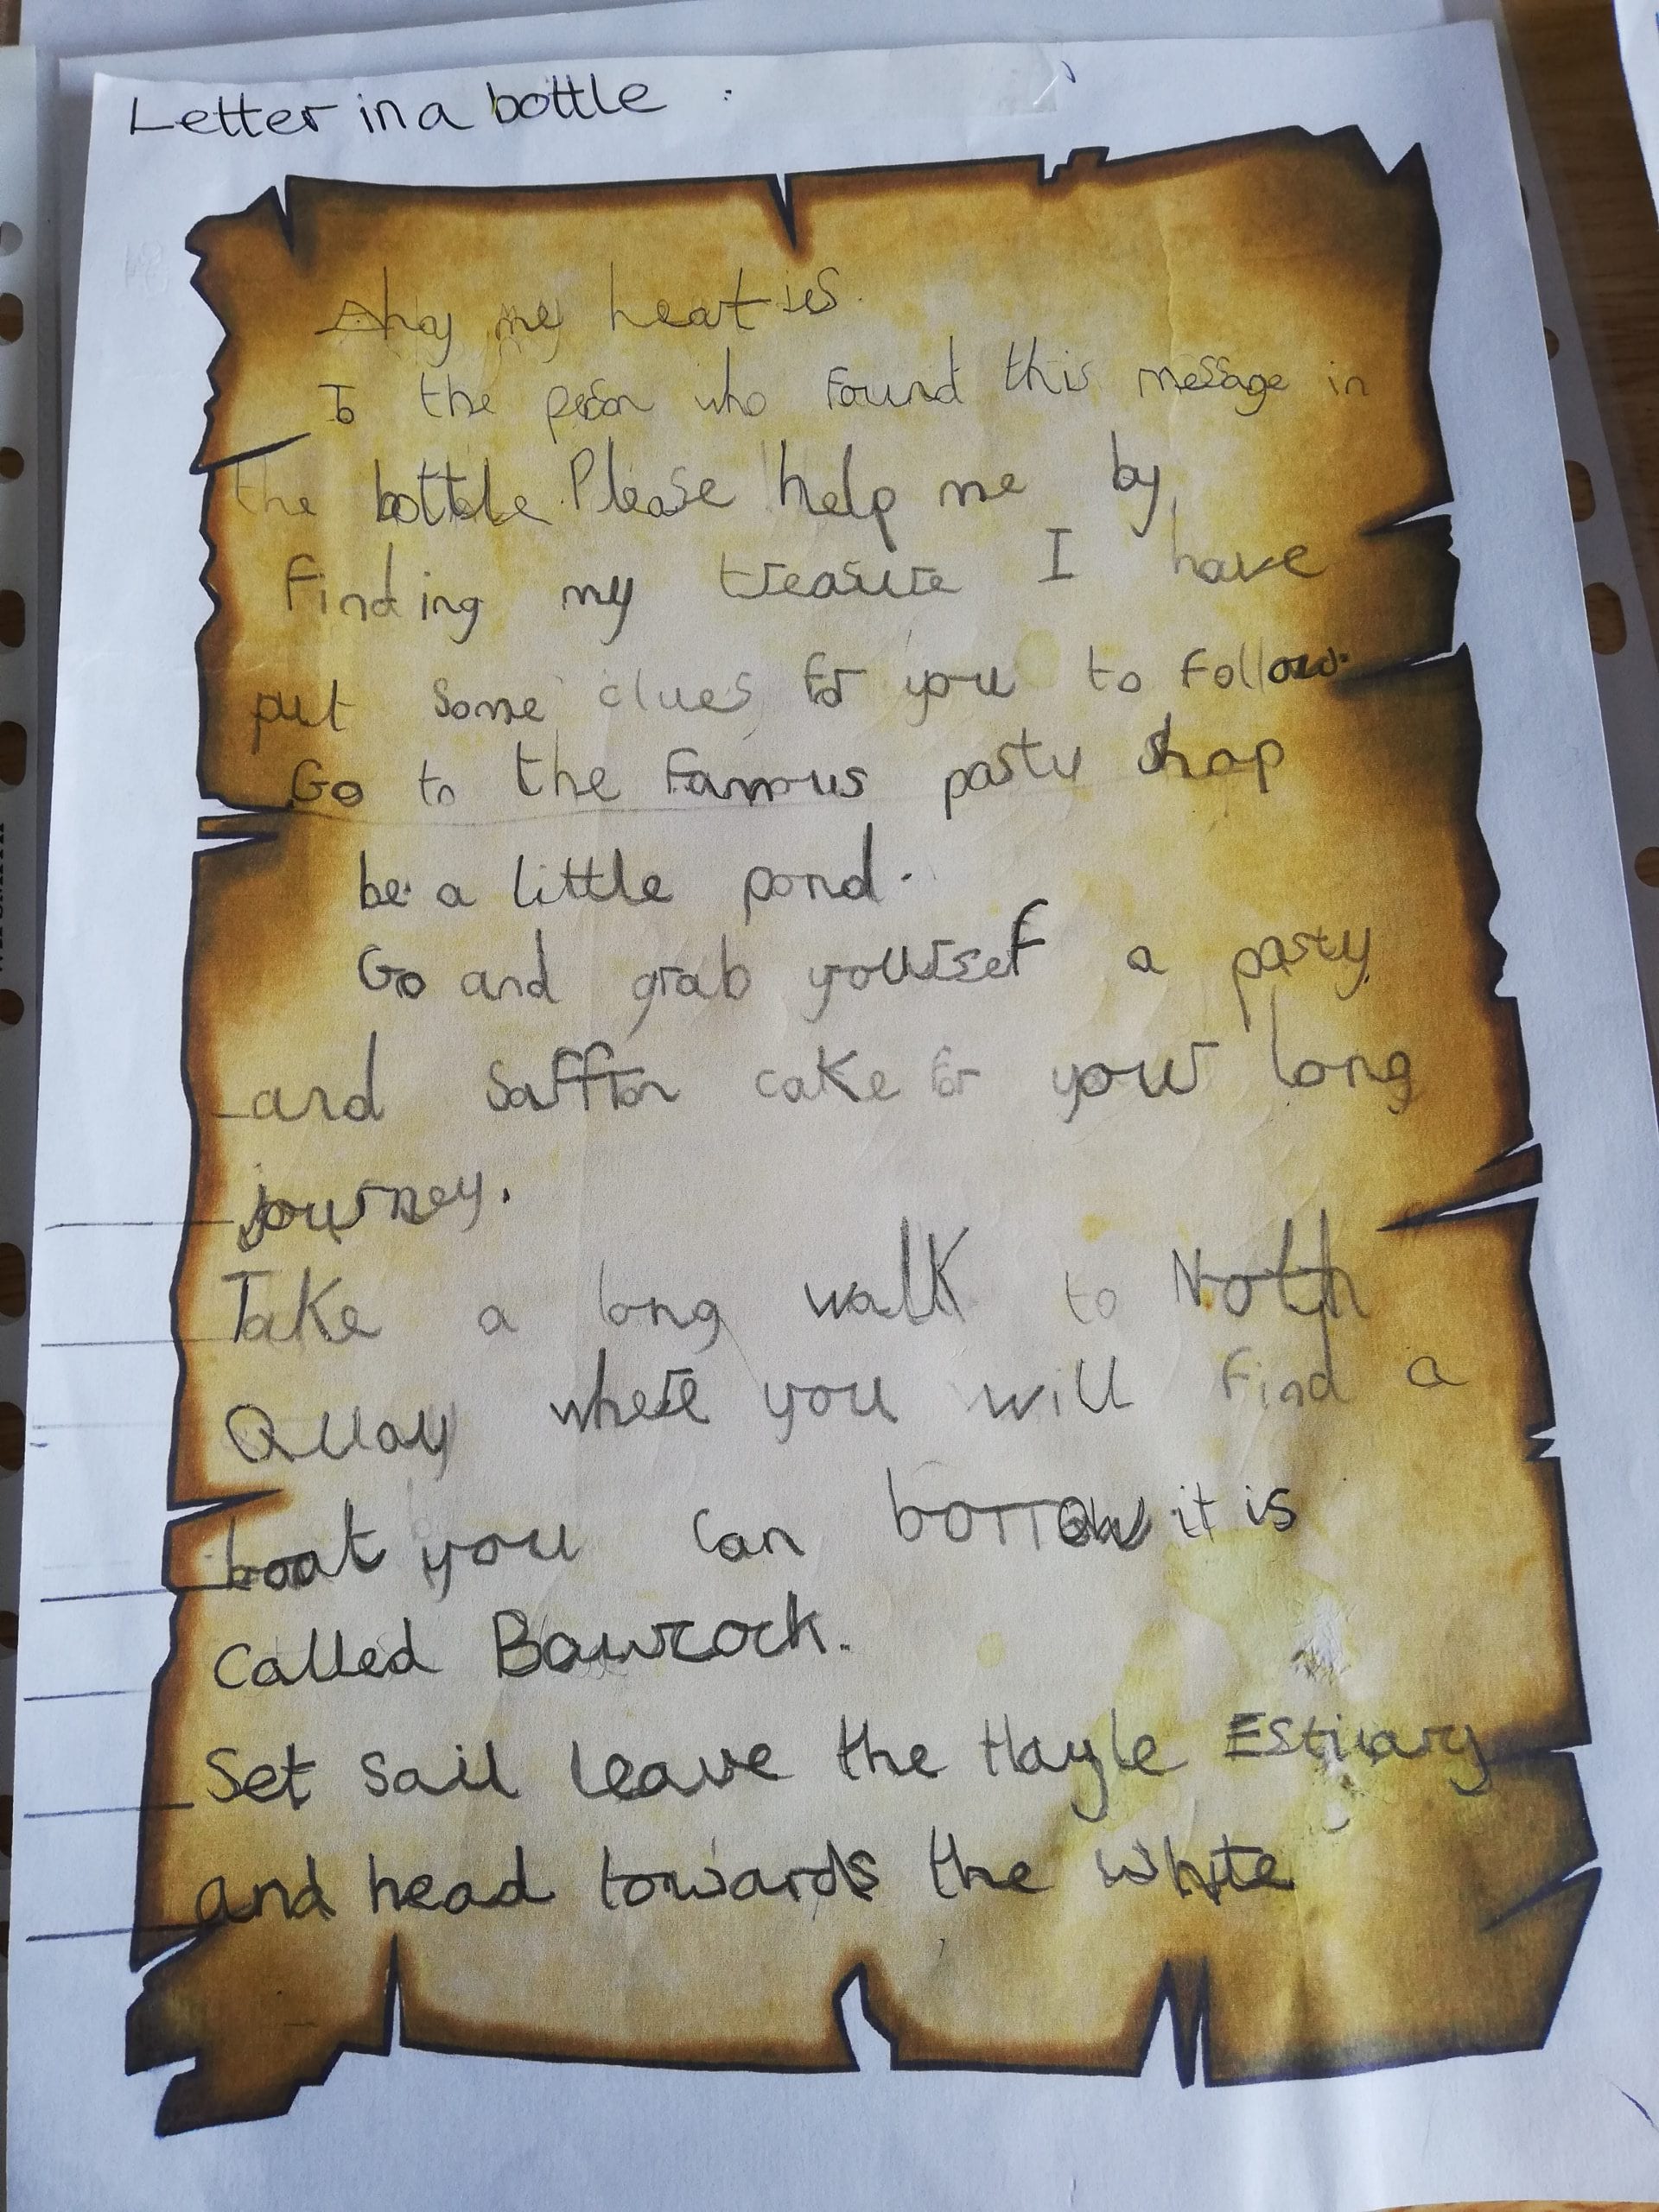 Letter in a bottle :
Ahoy my hearties.
To the person who found this message in
the bottle. Please help me by
finding my treasure I have
put some clues for you to follow.
Go to the famous pasty shop
be a little pond.
Go and grab yourself a pasty
and saffron cake for your long
journey.
Take a long walk to North
Quay where you will find a
boat you can borrow it is
called Bawcock.
Set sail leave the Hayle Estuary
and head towards the white